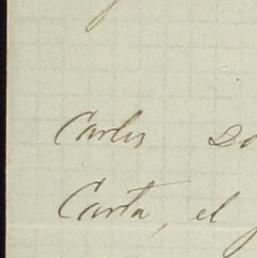 Carlos
Carta, el